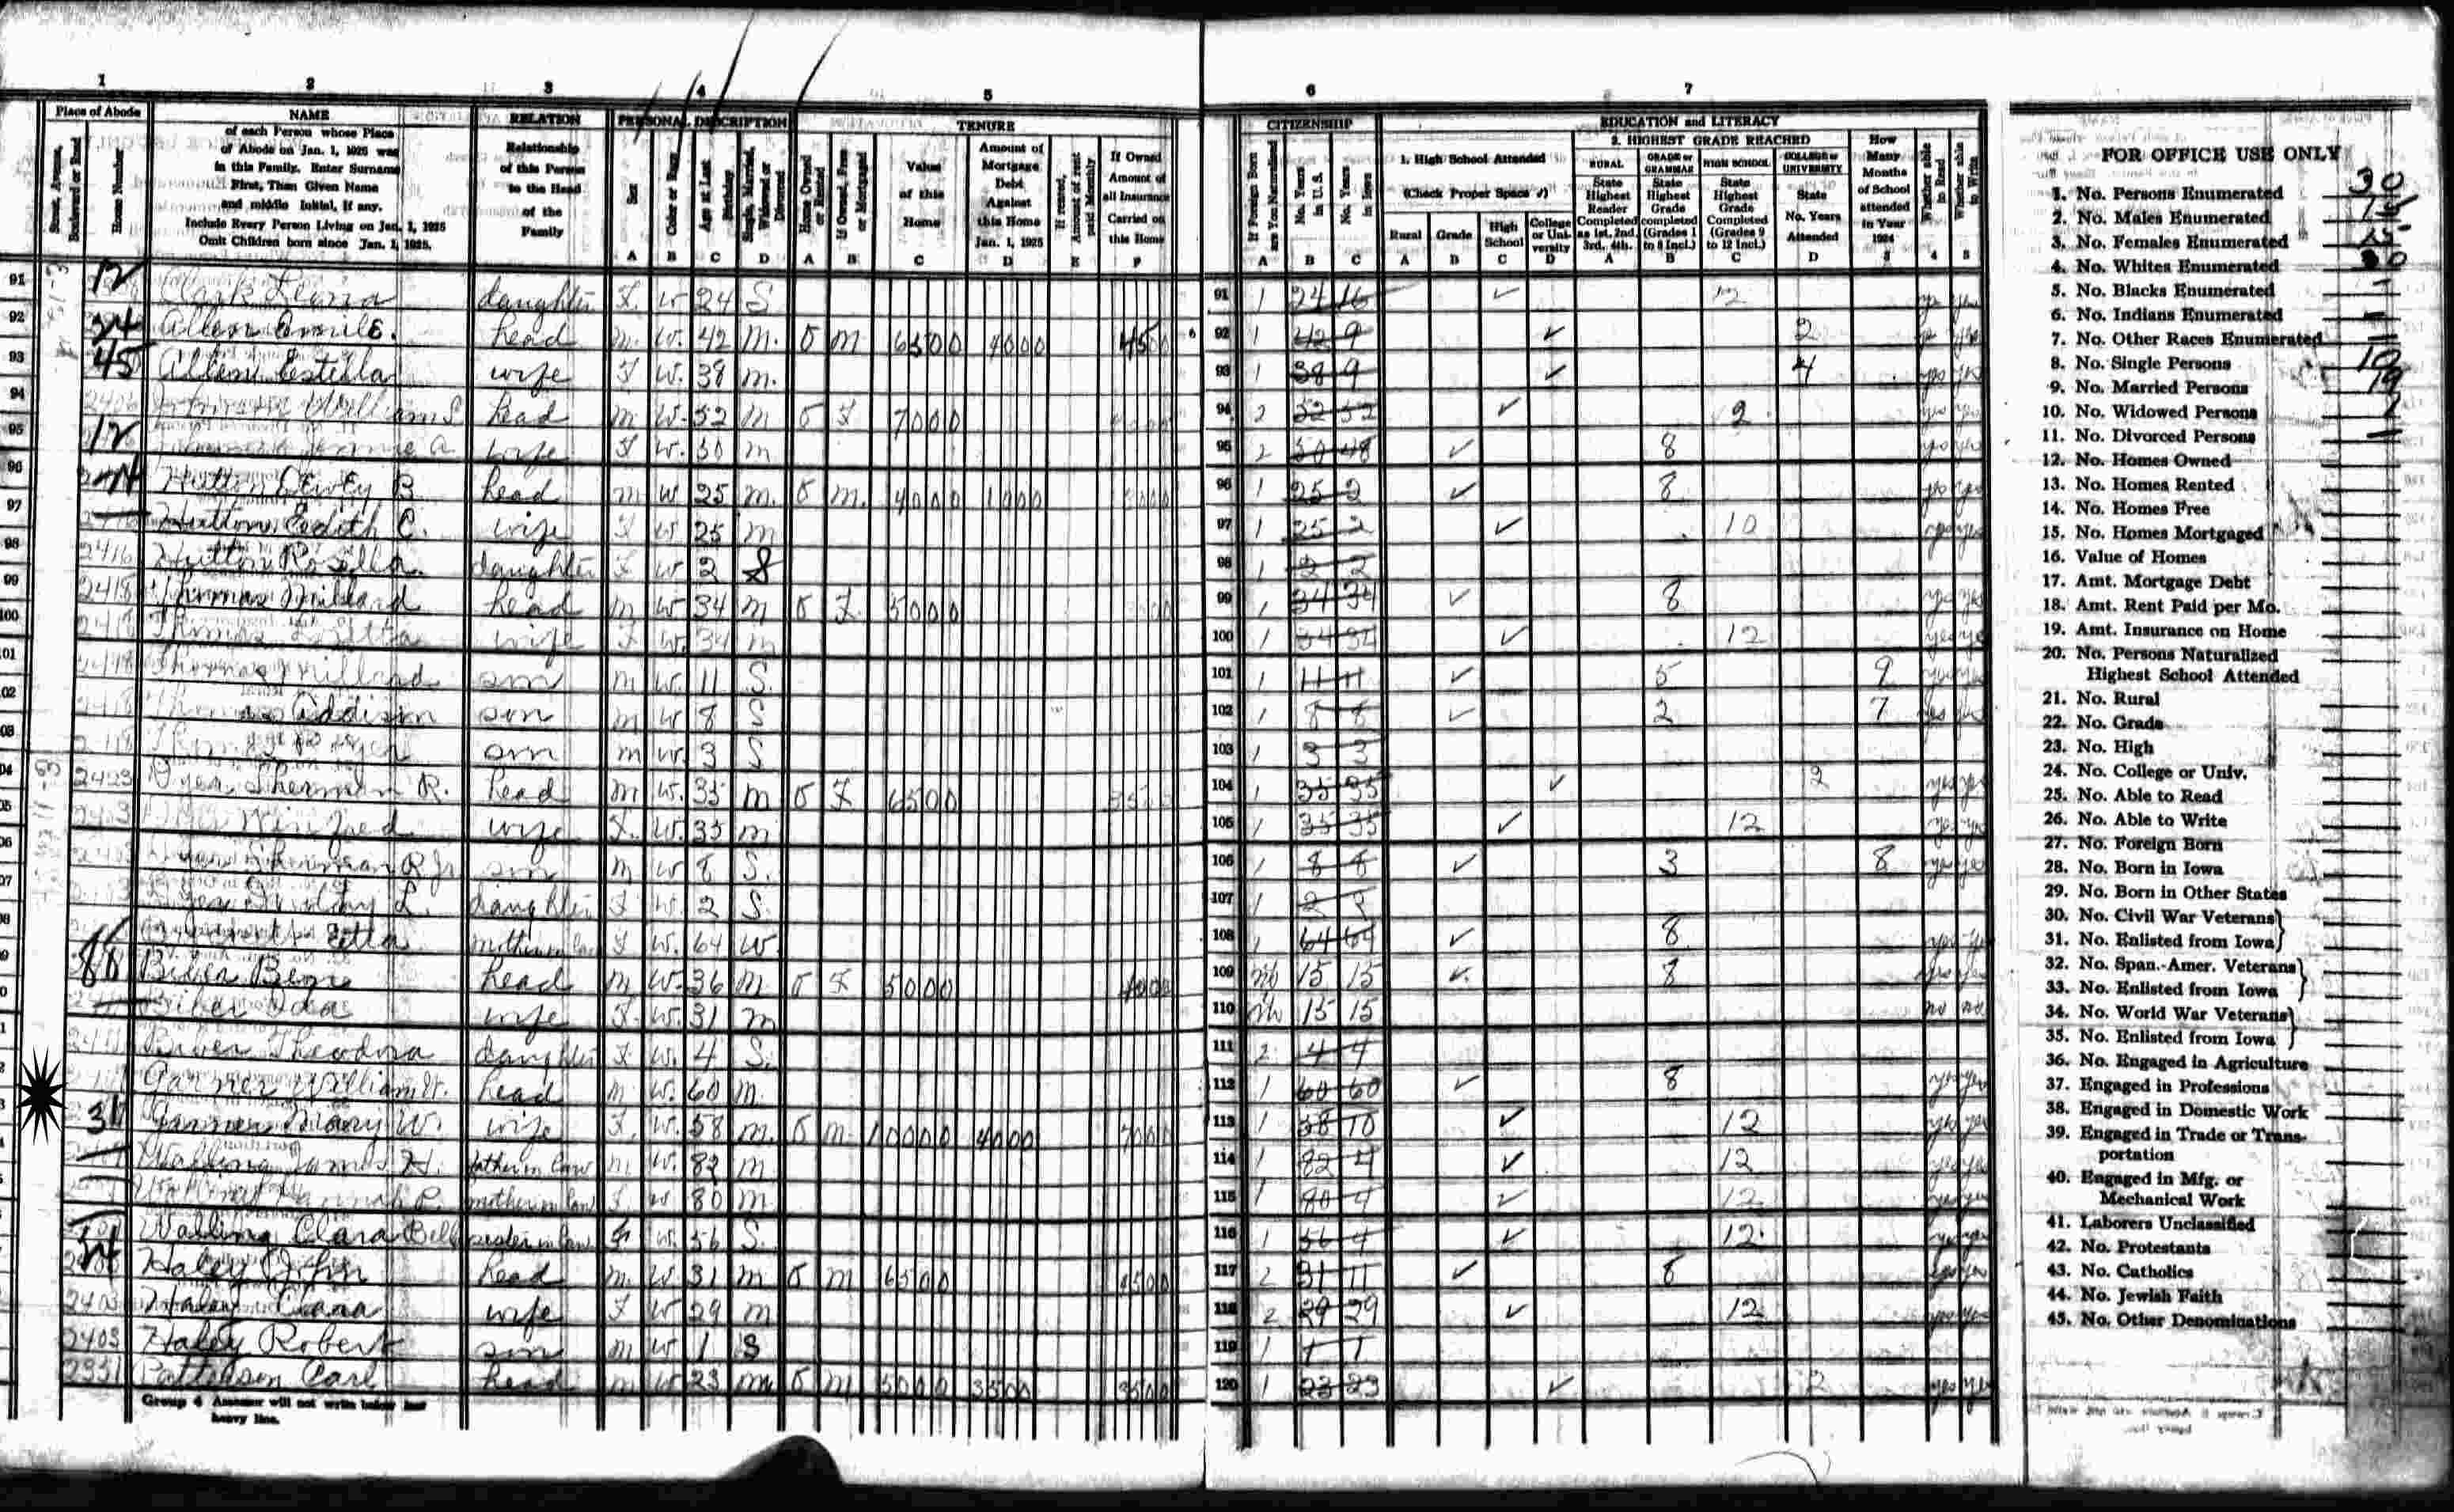 1 2 3 4 5 6 7
Place of Abode
Street, Avenue, Boulevard or Road
House Number
NAME
of each Person whose Place
of Abode on Jan. 1, 1925 was
in this Family. Enter Surname
First, Then Given Name
and middle Initial, if any.
Include Every Person Living on Jan. 1, 1925
Omit Children born since Jan. 1, 1925.
RELATION
Relationship
of this Person
to the Head
of the
Family
PERSONAL DESCRIPTION
Sex
Color or Race
Age at Last Birthday
Single, Married, Widowed or Divorced
A B C D
TENURE
Home Owned or Rented
If Owned, Free or Mortgaged
Value of this Home
Amount of Mortgage Debt Against this Home Jan. 1, 1925
If rented, Amount of rent paid Monthly
If Owned Amount of all Insurance Carried on this Home
A B C D E F
CITIZENSHIP
If Foreign Born are You Naturalized
No. Years in U.S.
No. Years in Iowa
A B C
EDUCATION and LITERACY
1. High School Attended
(Check Proper Space ✓)
Rural Grade High School College or University
A B C D
2. HIGHEST GRADE REACHED
RURAL State Highest Reader Completed as 1st, 2nd, 3rd, 4th.
GRADE or GRAMMAR State Highest Grade completed (Grades 1 to 8 Incl.)
HIGH SCHOOL State Highest Grade Completed (Grades 9 to 12 Incl.)
COLLEGE or UNIVERSITY State No. Years Attended
A B C D
How Many Months of School attended in Year 1924
Whether able to Read
Whether able to Write
3 4 5
91 daughter F W 24 S 91 1 24 16 ✓ 12
92 Allen Emil E. head m. W. 42 m. O m 6500 4000 4500 92 1 42 9 ✓ 2
93 Allen Estella wife F W. 38 m. 93 1 38 9 ✓ 4 yes yes
94 William head m W. 52 m O F 7000 94 2 52 52 ✓ 9 yes yes
95 wife F W. 50 m 95 2 50 48 ✓ 8 yes yes
96 Hutton Dewey B head m W 25 m. O m. 4000 1000 96 1 25 2 ✓ 8 yes yes
97 Hutton Edith C. wife F W 25 m 97 1 25 2 ✓ 10 yes yes
98 2416 Hutton Rosella daughter F W 2 S 98 1 2 2
99 2418 Thomas Millard head m W. 34 m O F. 5000 99 1 34 34 ✓ 8 yes yes
100 2418 Thomas wife F W. 34 m 100 1 34 34 ✓ 12 yes yes
101 2418 Thomas Millard son m W. 11 S. 101 1 11 11 ✓ 5 9 yes yes
102 2418 Thomas Addison son m W 8 S 102 1 8 8 ✓ 2 7 yes yes
103 2418 son m W. 3 S 103 1 3 3
104 2423 Dyer Sherman R. head m W. 35 m O F 6500 104 1 35 35 ✓ 2 yes yes
105 Winifred wife F. W. 35 m 105 1 35 35 ✓ 12 yes yes
106 Dyer Sherman R Jr son m W 8 S. 106 1 8 8 ✓ 3 8 yes yes
107 Dyer Dorothy L. daughter F W. 2 S. 107 1 2 2
108 Etta mother in law F W. 64 W. 108 1 64 64 ✓ 8
109 Biber Benj head m W. 36 m O F 5000 4000 109 no 15 15 ✓ 8 yes yes
110 Biber Ida wife F. W. 31 m 110 no 15 15 no no
111 Biber Theodora daughter F W. 4 S. 111 2 4 4
112 Garner William W. head m W. 60 m. 112 1 60 60 ✓ 8 yes yes
113 Garner Mary W. wife F. W. 58 m. O m 10000 4000 7000 113 1 58 10 ✓ 12 yes yes
114 Walling James H. father in law m W. 82 m 114 1 82 4 ✓ 12 yes yes
115 Walling Hannah P. mother in law F W 80 m 115 1 80 4 ✓ 12 yes yes
116 Walling Clara Bell sister in law W. 56 S. 116 1 56 4 ✓ 12 yes yes
117 Haley John head m. W. 31 m O m 6500 4500 117 2 31 11 ✓ 8 yes yes
118 2403 Haley Clara wife F W 29 m 118 2 29 29 ✓ 12 yes yes
119 2403 Haley Robert son m W 1 S 119 1 1 1
120 2331 Patterson Carl head m W 23 m O m 5000 3500 3500 120 1 23 23 ✓ 2 yes yes
Group 4 Assessor will not write below last
heavy line.
FOR OFFICE USE ONLY
1. No. Persons Enumerated 30
2. No. Males Enumerated 15
3. No. Females Enumerated 15
4. No. Whites Enumerated 30
5. No. Blacks Enumerated –
6. No. Indians Enumerated –
7. No. Other Races Enumerated –
8. No. Single Persons 10
9. No. Married Persons 19
10. No. Widowed Persons 1
11. No. Divorced Persons –
12. No. Homes Owned
13. No. Homes Rented
14. No. Homes Free
15. No. Homes Mortgaged
16. Value of Homes
17. Amt. Mortgage Debt
18. Amt. Rent Paid per Mo.
19. Amt. Insurance on Home
20. No. Persons Naturalized
Highest School Attended
21. No. Rural
22. No. Grade
23. No. High
24. No. College or Univ.
25. No. Able to Read
26. No. Able to Write
27. No. Foreign Born
28. No. Born in Iowa
29. No. Born in Other States
30. No. Civil War Veterans
31. No. Enlisted from Iowa
32. No. Span.-Amer. Veterans
33. No. Enlisted from Iowa
34. No. World War Veterans
35. No. Enlisted from Iowa
36. No. Engaged in Agriculture
37. Engaged in Professions
38. Engaged in Domestic Work
39. Engaged in Trade or Transportation
40. Engaged in Mfg. or
Mechanical Work
41. Laborers Unclassified
42. No. Protestants
43. No. Catholics
44. No. Jewish Faith
45. No. Other Denominations